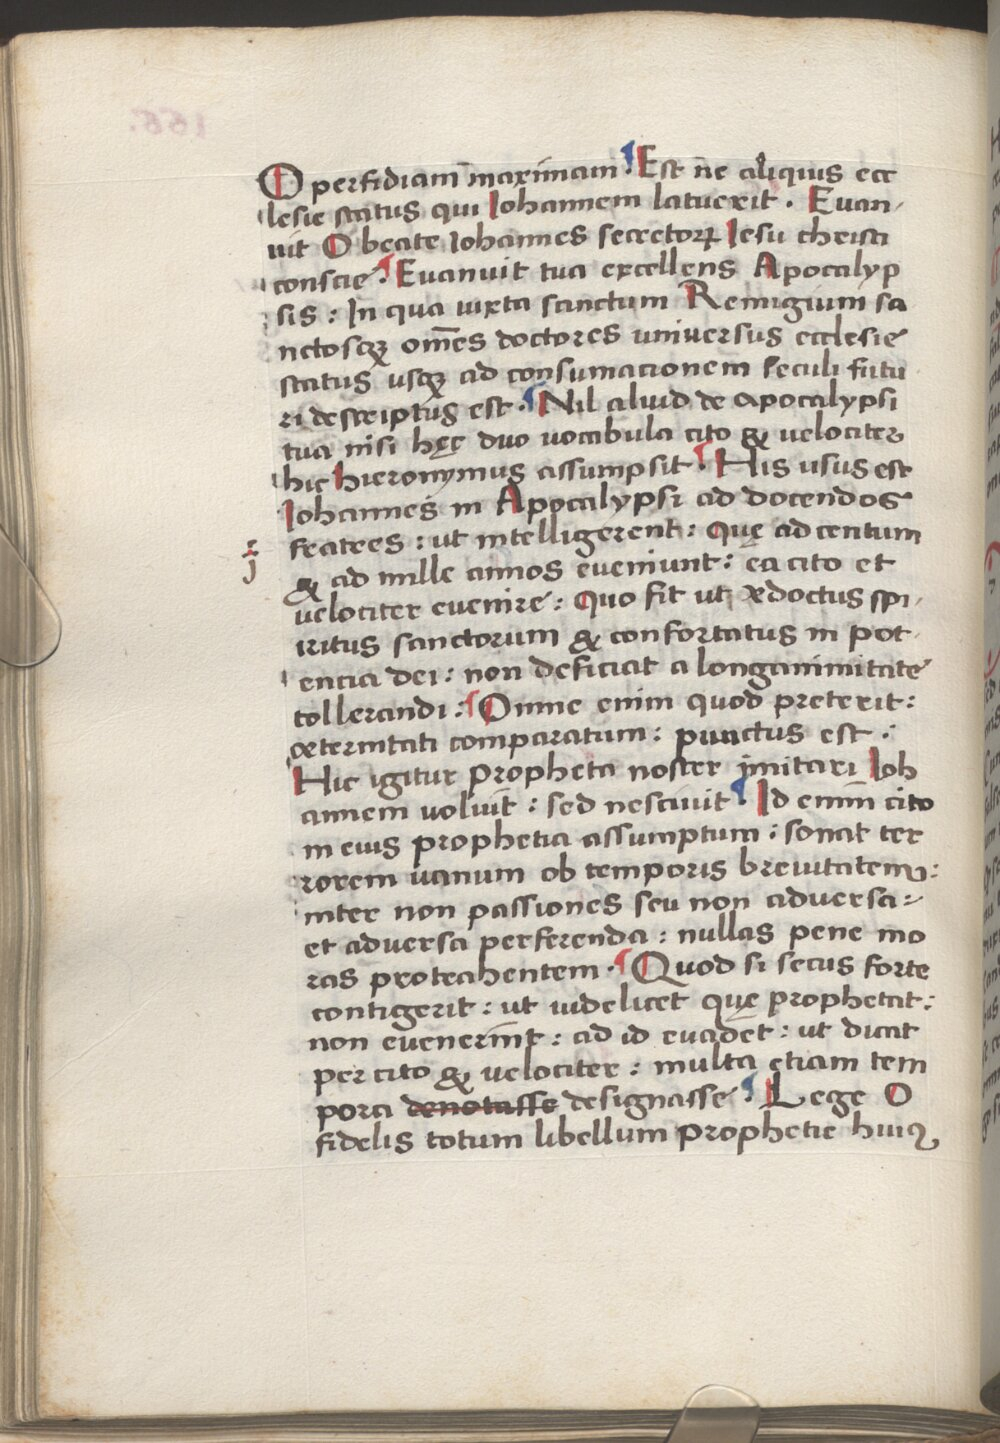 O perfidiam maximam. ¶ Est ne aliquis ecc
lesie status qui Iohannem latuerit. Evan-
uit O beate Iohannes secretorꝝ Iesu christi
conscie. ¶ Evanuit tua excellens Apocalyp
sis: In qua iuxta sanctum Remigium sa
nctosqꝫ om̄es doctores universus ecclesie
status usqꝫ ad consumacionem seculi futu
ri descriptus est. ¶ Nil aliud de apocalypsi
tua nisi hęc duo vocabula cito & velociter
hic hieronymus assumpsit. ¶ His usus est
Iohannes in Apocalypsi ad docendos
fratres: ut intelligerent: Quę ad centum
& ad mille annos eveniunt: ea cito et
velociter evenire: Quo fit ut ędoctus spi-
ritus sanctorum & confortatus in pot
entia dei: non deficiat a longanimitate
tollerandi: ¶ Omne enim quod preterit:
æternitati comparatum: punctus est.
Hic igitur propheta noster imitari Ioh
annem voluit: sed nescivit ¶ Id enim cito
in eius prophetia assumptum: sonat ter
rorem vanum ob temporis brevitatem:
inter non passiones seu non adversa:
et adversa perferenda: nullas pene mo
ras protrahentem. ¶ Quod si secus forte
contigerit: ut videlicet quę prophetat:
non evenerint: ad id evadet: ut dicat
per cito & velociter: multa etiam tem
pora denotasse designasse. ¶ Lege O
fidelis totum libellum prophetie huiꝰ